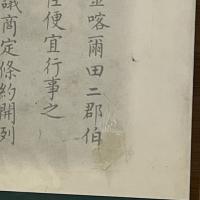 喀爾田二郡伯
任便宜行事之
議商定條約開列